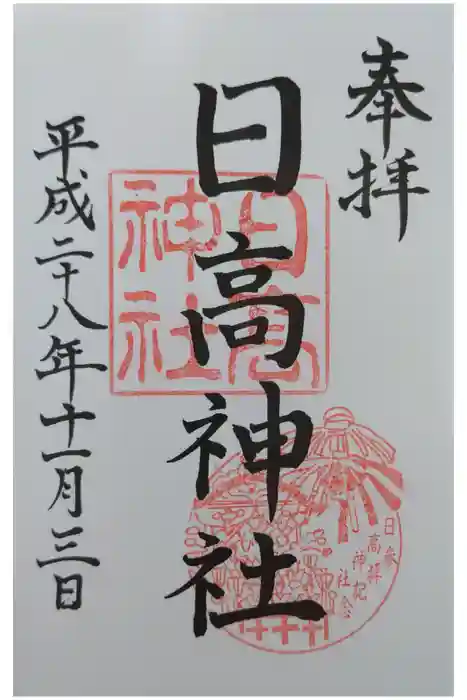 奉拝
日高神社
平成二十八年十一月三日
日高
神社
参拝
記念
日高
神社